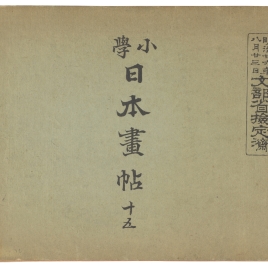 明治廿六年
八月廿三日
文部省検定済
小學
日本畫帖
十五